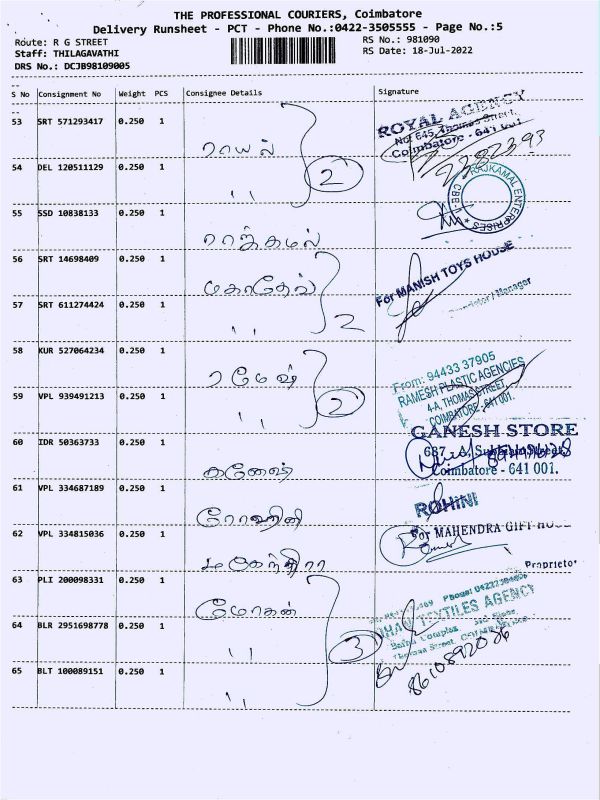 THE PROFESSIONAL COURIERS, Coimbatore
Delivery Runsheet - PCT - Phone No.:0422-3505555 - Page No.:5
Route: R G STREET
RS No.: 981090
Staff: THILAGAVATHI
RS Date: 18-Jul-2022
DRS No.: DCJB98109005
S No Consignment No Weight PCS Consignee Details Signature
53 SRT 571293417 0.250 1 ராயல் ROYAL AGENCY
No: 645, Thomas Street,
Coimbatore - 641 001
54 DEL 120511129 0.250 1 " 2
RAJKAMAL ENTERPRISES CBE-1
55 SSD 10838133 0.250 1 ராஜ்கமல்
56 SRT 14698409 0.250 1 மகாதேவ் For MANISH TOYS HOUSE
Proprietor / Manager
57 SRT 611274424 0.250 1 " 2
58 KUR 527064234 0.250 1 ரமேஷ் From: 94433 37905
RAMESH PLASTIC AGENCIES
4-A, THOMAS STREET,
COIMBATORE - 641 001.
59 VPL 939491213 0.250 1 " 2
60 IDR 50363733 0.250 1 கணேஷ் GANESH STORE
687 - A,
Coimbatore - 641 001.
61 VPL 334687189 0.250 1 ரோஹிணி ROHINI
62 VPL 334815036 0.250 1 மகேந்திரா For MAHENDRA GIFT
Proprietor
63 PLI 200098331 0.250 1 மோகன் TEXTILES AGENCY
64 BLR 2951698778 0.250 1 " 3
Thomas Street,
8610892036
65 BLT 100089151 0.250 1 "